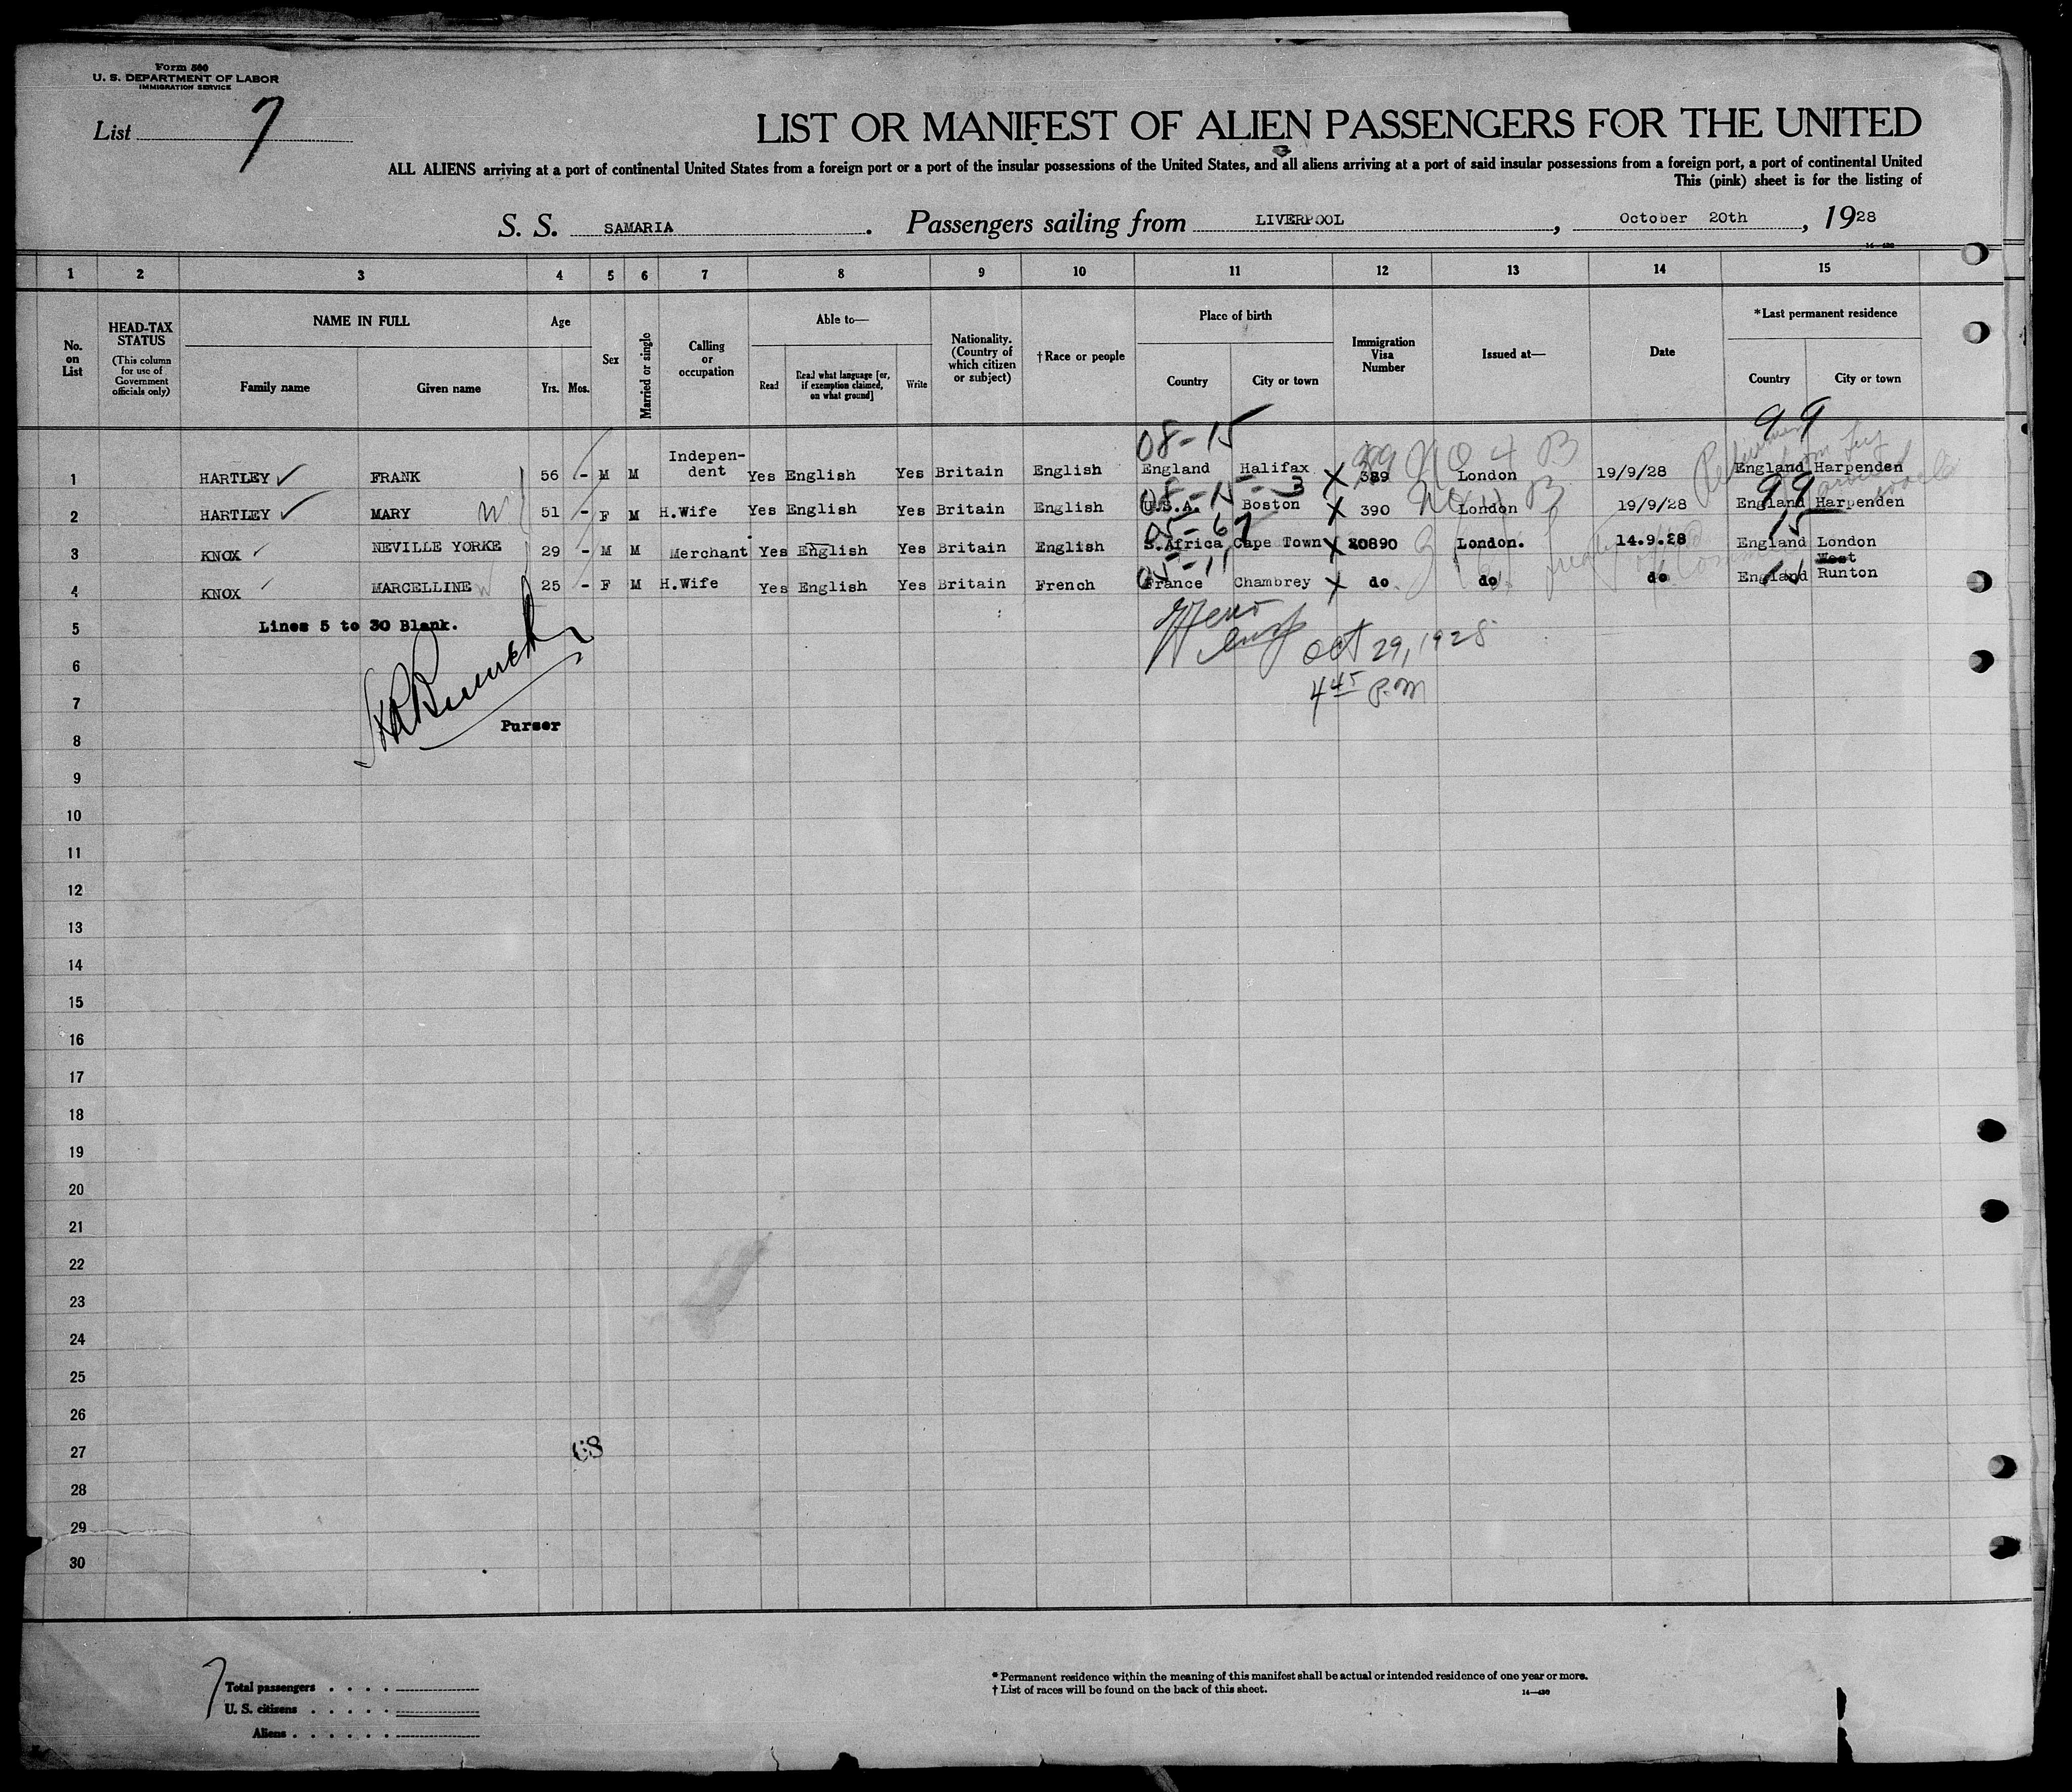 Form 500
U. S. DEPARTMENT OF LABOR
IMMIGRATION SERVICE
List 7
LIST OR MANIFEST OF ALIEN PASSENGERS FOR THE UNITED
ALL ALIENS arriving at a port of continental United States from a foreign port or a port of the insular possessions of the United States, and all aliens arriving at a port of said insular possessions from a foreign port, a port of continental United
This (pink) sheet is for the listing of
S. S. SAMARIA. Passengers sailing from LIVERPOOL, October 20th, 1928
1 2 3 4 5 6 7 8 9 10 11 12 13 14 15
No. on List
HEAD-TAX STATUS
(This column for use of Government officials only)
NAME IN FULL
Family name Given name
Age
Yrs. Mos.
Sex
Married or single
Calling or occupation
Able to—
Read
Read what language [or, if exemption claimed, on what ground]
Write
Nationality. (Country of which citizen or subject)
†Race or people
Place of birth
Country City or town
Immigration Visa Number
Issued at—
Date
*Last permanent residence
Country City or town
08-15 99
1 HARTLEY ✓ FRANK 56 - M M Indepen-dent Yes English Yes Britain English England Halifax X 389 London 19/9/28 England Harpenden
NO 4 B
08-15-3 99
2 HARTLEY ✓ MARY W 51 - F M H.Wife Yes English Yes Britain English U.S.A. Boston X 390 London 19/9/28 England Harpenden
05-67 15
3 KNOX ✓ NEVILLE YORKE 29 - M M Merchant Yes English Yes Britain English S.Africa Cape Town X 20890 London. 14.9.28 England London
05-11
4 KNOX ✓ MARCELLINE W 25 - F M H.Wife Yes English Yes Britain French France Chambrey X do. do. do England West Runton
5 Lines 5 to 30 Blank.
Oct 29, 1928
6
4 45 P.M
7
Purser
8
9
10
11
12
13
14
15
16
17
18
19
20
21
22
23
24
25
26
27
68
28
29
30
7
Total passengers
U. S. citizens
Aliens
* Permanent residence within the meaning of this manifest shall be actual or intended residence of one year or more.
† List of races will be found on the back of this sheet.
14—430